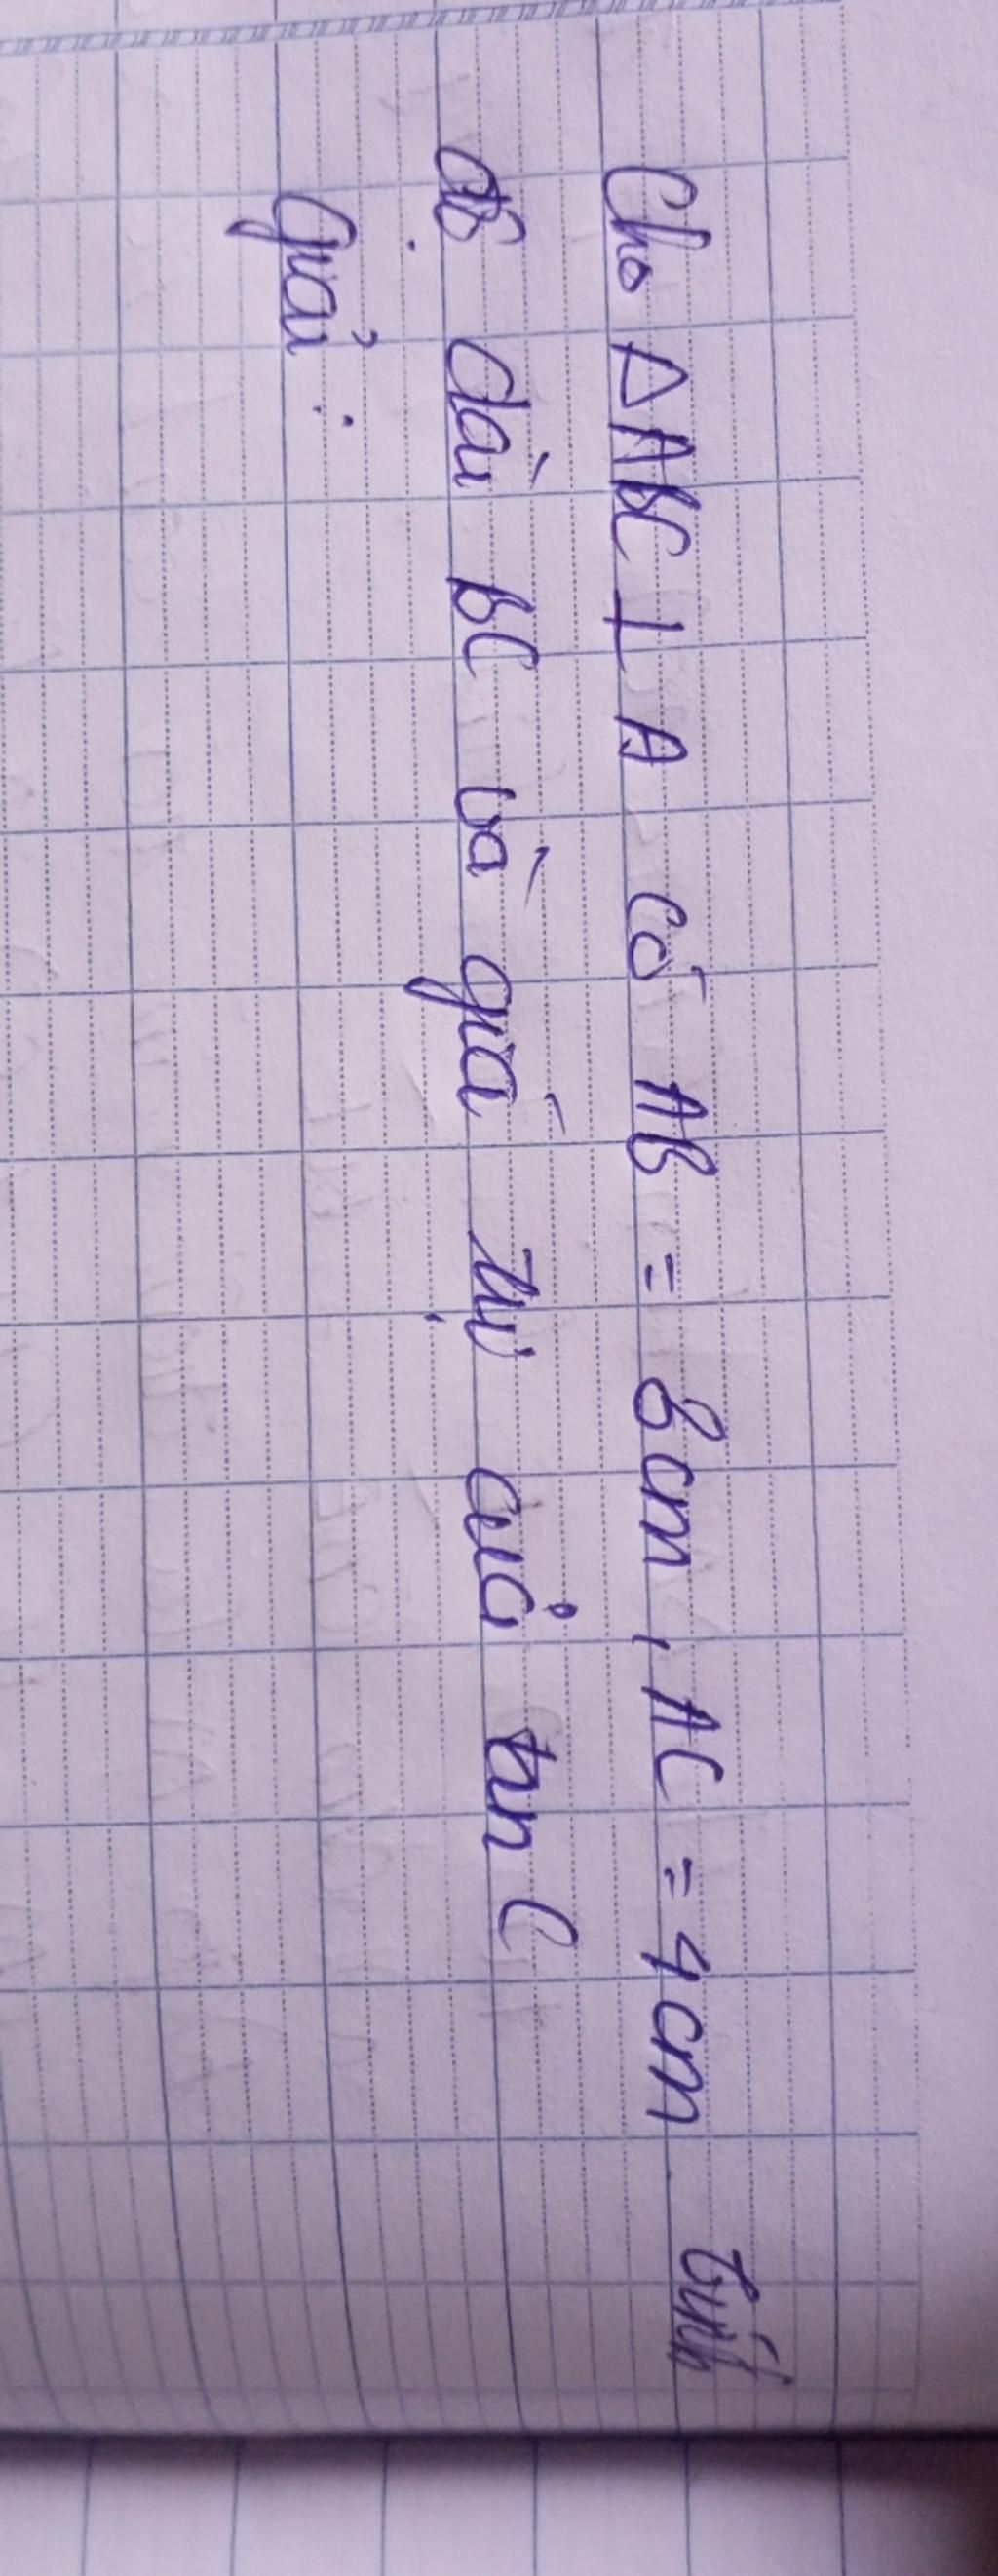 Cho △ABC ⊥ A có AB = 8cm, AC = 4cm tính
độ dài BC và giá trị của tan C
Giải: